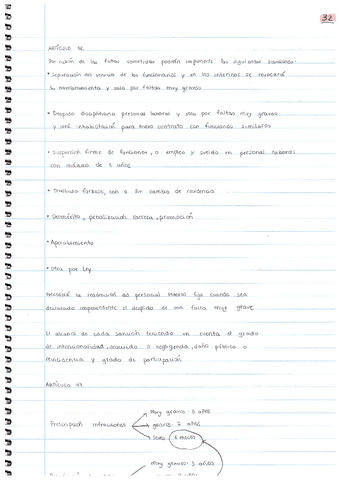 32
ARTÍCULO 96
Por razón de las faltas cometidas podrán imponerse las siguientes sanciones:
• Separación del servicio de los funcionarios y en los interinos se revocará
su nombramiento y solo por faltas muy graves
• Despido disciplinario personal laboral y solo por faltas muy graves
y será inhabilitación para nuevo contrato con funciones similares
• Suspensión firme de funciones, o empleo y sueldo en personal laboral
con máximo de 6 años
• Traslado forzoso, con o sin cambio de residencia
• Demérito, penalización carrera, promoción
• Apercibimiento
• Otra por Ley
Procederá la readmisión del personal laboral fijo cuando sea
declarado improcedente el despido de una falta muy grave
El alcance de cada sanción teniendo en cuenta el grado
de intencionalidad, descuido o negligencia, daño público o
reincidencia y grado de participación
ARTÍCULO 97
muy graves: 3 años
Prescripción infracciones
graves: 2 años
leves: 6 meses
muy graves: 3 años